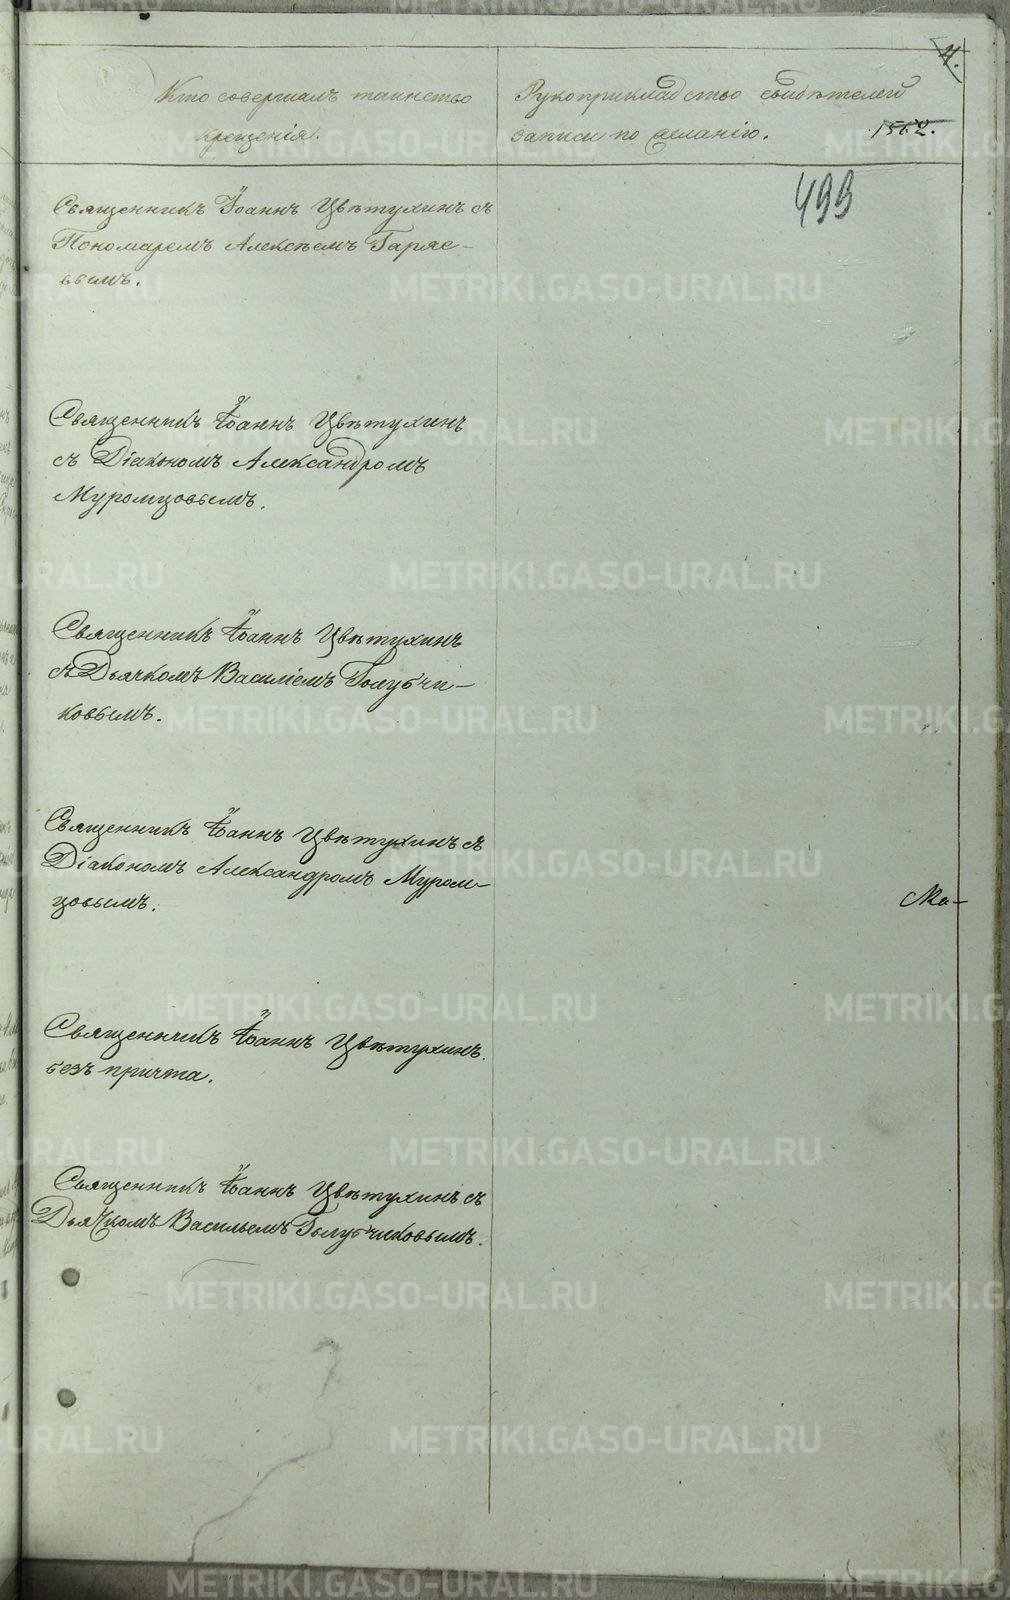 4.
Кто совершалъ таинство
крещенія.
Рукоприкладство свидѣтелей
записи по желанію.
1512.
499
Священникъ Іоаннъ Цвѣтухинъ съ
Пономаремъ Алексѣемъ Гаряе-
вымъ.
Священникъ Іоаннъ Цвѣтухинъ
съ Діакономъ Александромъ
Муромцовымъ.
Священникъ Іоаннъ Цвѣтухинъ
съ Дьячкомъ Василіемъ Голубчи-
ковымъ.
Священникъ Іоаннъ Цвѣтухинъ съ
Діакономъ Александромъ Муром-
цовымъ.
Ма-
Священникъ Іоаннъ Цвѣтухинъ.
безъ причта.
Священникъ Іоаннъ Цвѣтухинъ съ
Дьячкомъ Васильемъ Голубчиковымъ.
METRIKI.GASO-URAL.RU